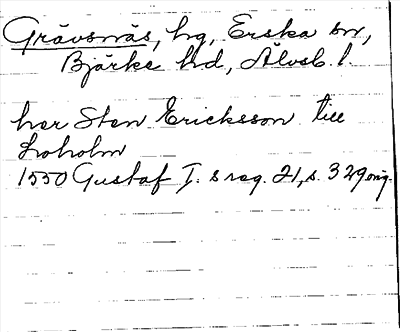 Gräfsnäs, hg, Erska sn,
Bjärke hd, Älvsb. l.
her Sten Ericksson till
Loholm
1550 Gustaf I:s reg. 21, s. 329